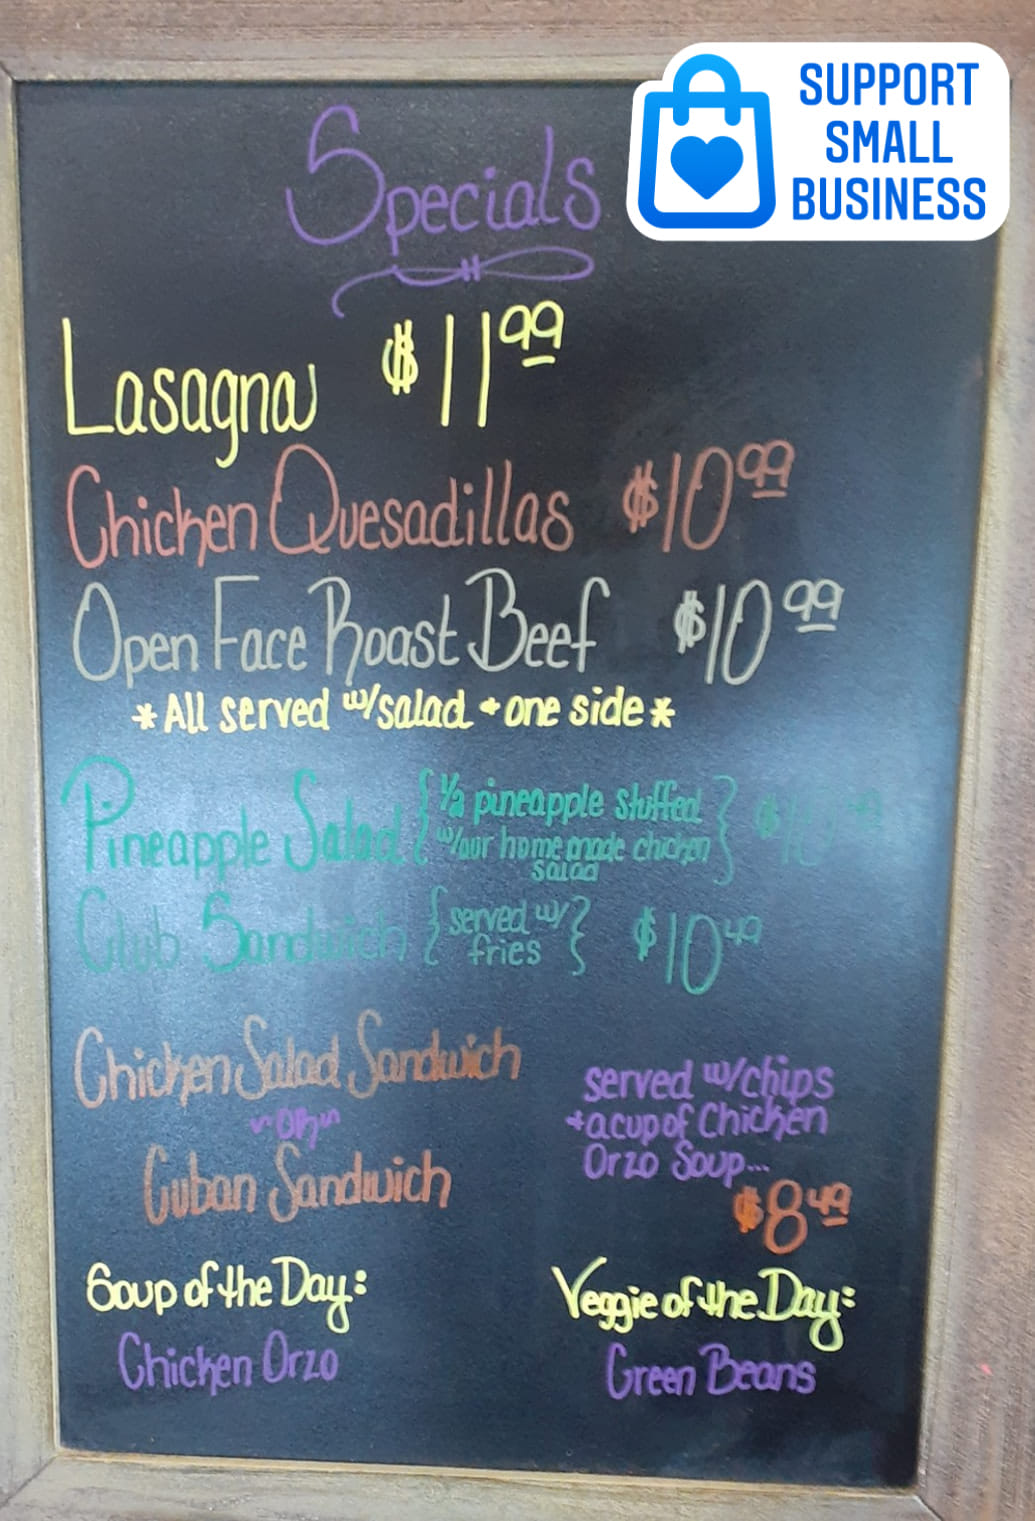 SUPPORT
SMALL
BUSINESS
Specials
Lasagna $11.99
Chicken Quesadillas $10.99
Open Face Roast Beef $10.99
*All served w/salad + one side*
Pineapple Salad {1/2 pineapple stuffed w/our homemade chicken salad}
Club Sandwich {served w/ fries} $10.49
Chicken Salad Sandwich
~OR~
Cuban Sandwich
served w/chips
+ a cup of Chicken
Orzo Soup...
$8.49
Soup of the Day:
Chicken Orzo
Veggie of the Day:
Green Beans